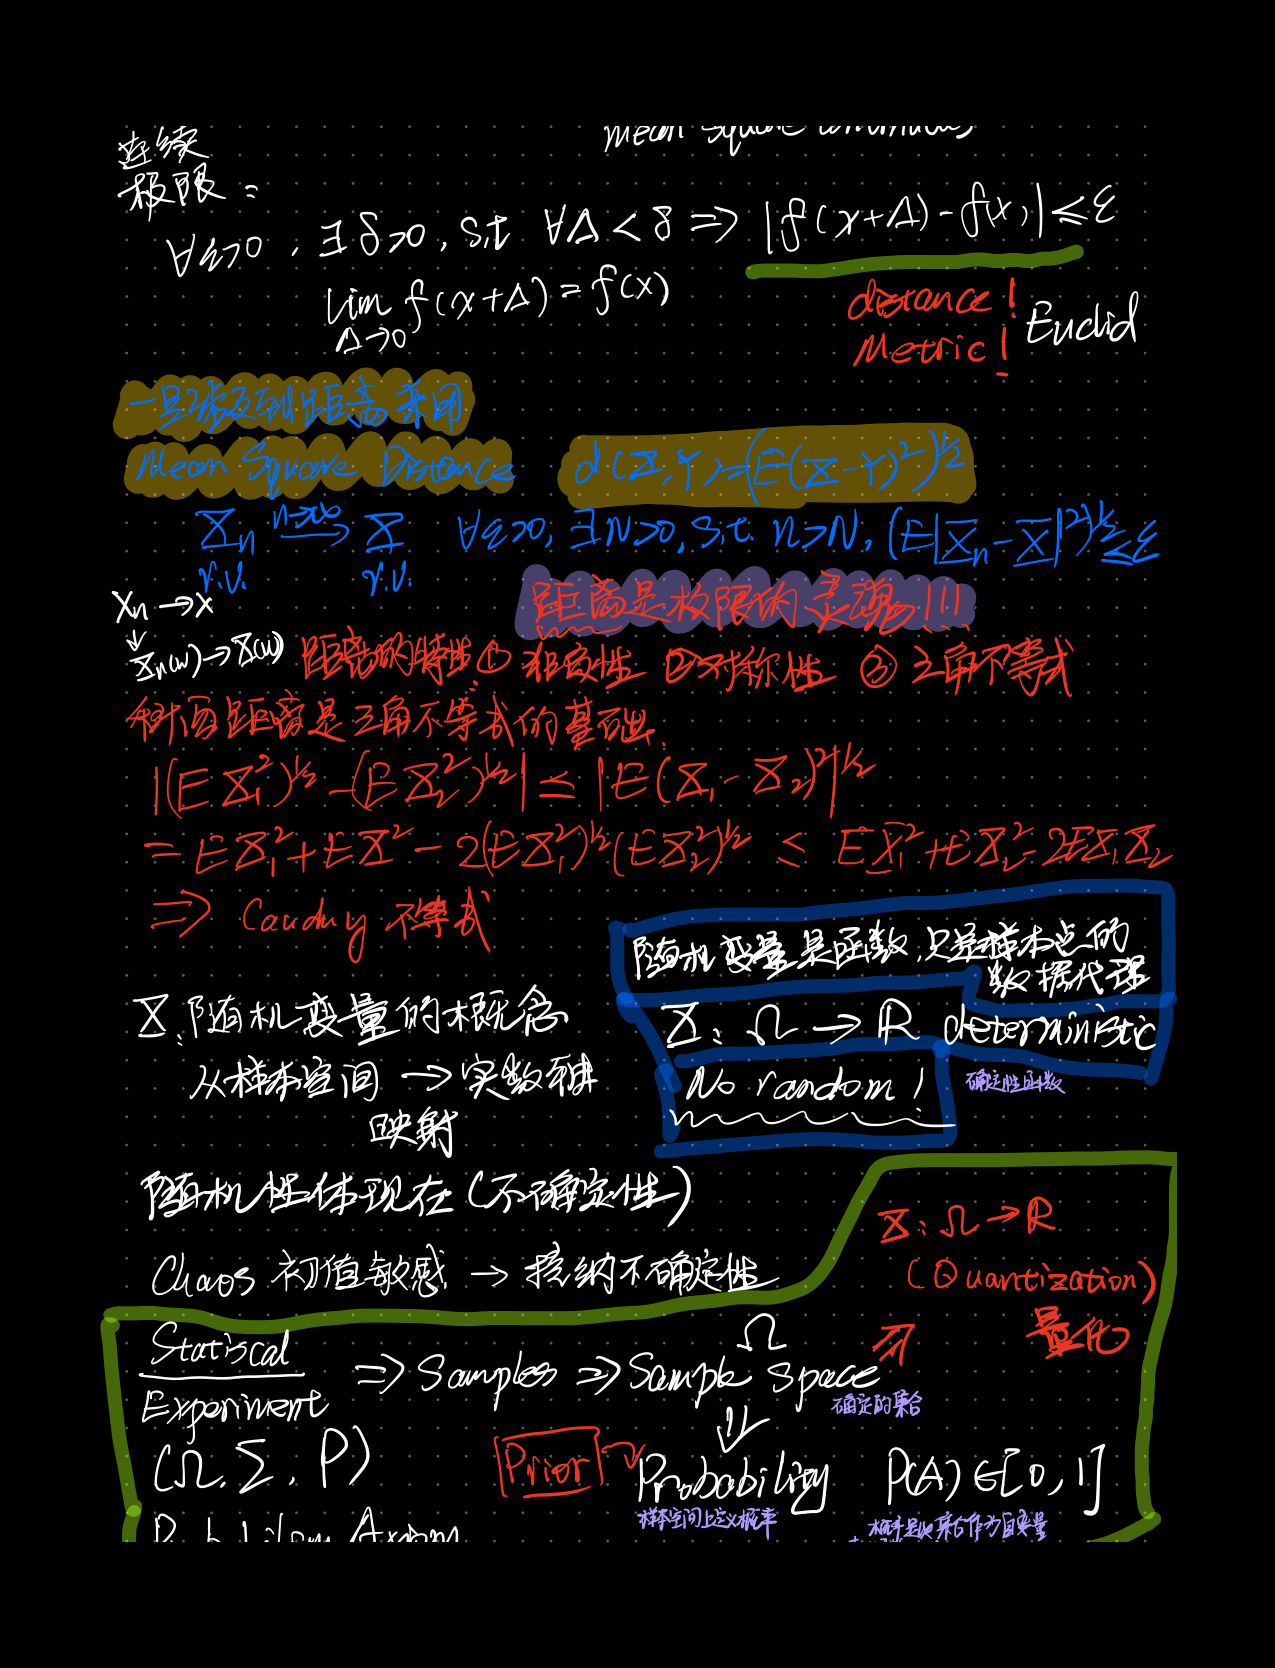 mean square continuous
连续
极限:
∀ε>0, ∃δ>0, s.t ∀Δ<δ ⇒ |f(x+Δ)-f(x)|≤ε
lim f(x+Δ)=f(x)
Δ→0
distance!
Metric! Euclid
一旦涉及到距离采用
Mean Square Distance d(X,Y)=(E(X-Y)²)^½
Xn n→∞ X ∀ε>0, ∃N>0, s.t. n>N, (E|Xn-X|²)^½≤ε
r.v. r.v.
xn→x
↓
Xn(w)→X(w)
距离是极限的灵魂!!!
距离的特性: ① 非负性 ②对称性 ③ 三角不等式
距离是三角不等式的基础.
|(EX₁²)^½-(EX₂²)^½| ≤ |E(X₁-X₂)²|^½
= EX₁²+EX²-2(EX₁²)^½(EX₂²)^½ ≤ EX₁²+EX₂²-2EX₁X₂
⇒ Cauchy 不等式
随机变量是函数,只是样本点的
数据代理
X: Ω → ℝ deterministic
确定性函数
No random!
X:随机变量的概念
从样本空间 → 实数轴
映射
随机性体现在(不确定性)
Chaos 初值敏感 → 接纳不确定性
X: Ω→ℝ
(Quantization)
量化
Statiscal
Experiment
⇒ Samples ⇒ Sample space
Ω
确定的集合
⇓
(Ω, Σ, P)
Prior → Probability P(A)∈[0,1]
样本空间上定义概率
概率是以集合作为自变量
Probability Axiom